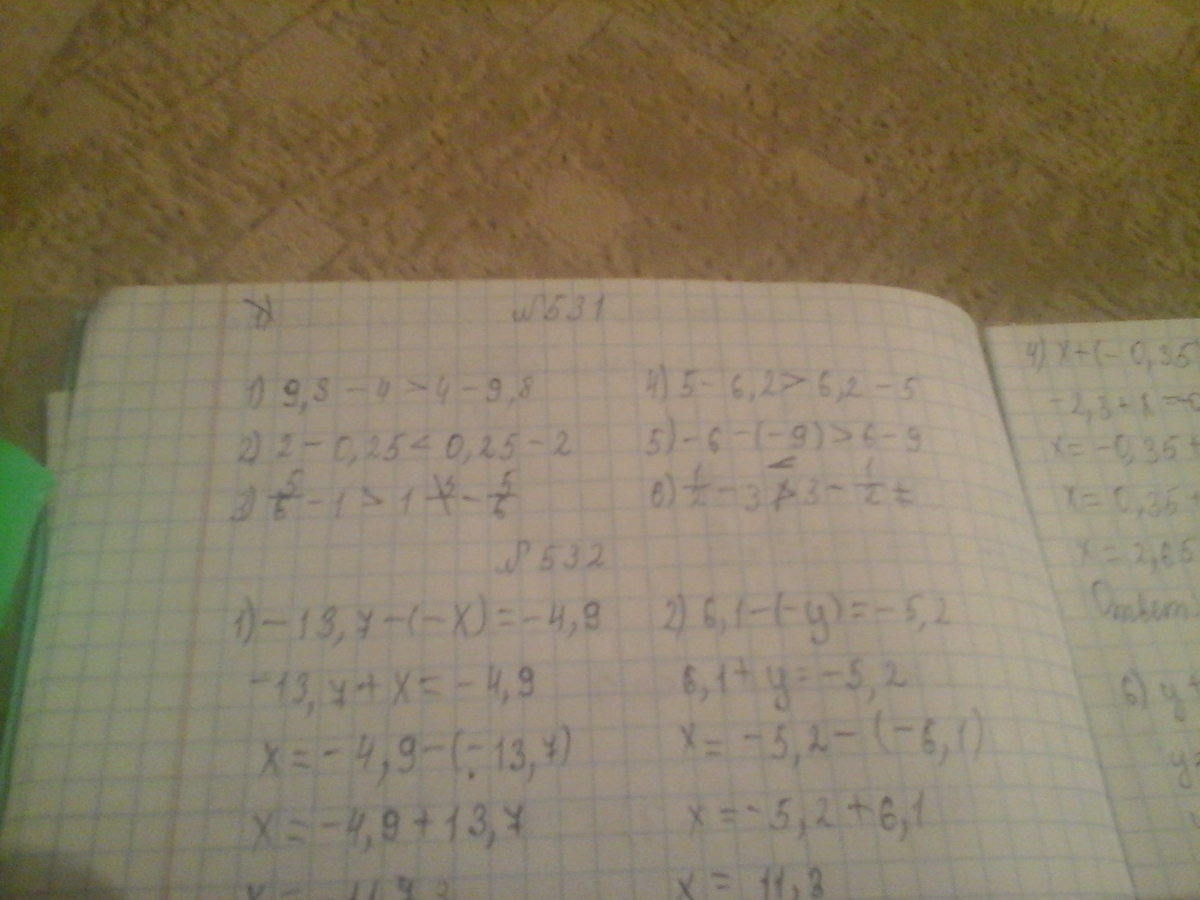 №531
1) 9,8 - 4 > 4 - 9,8
2) 2 - 0,25 < 0,25 - 2
3) 5/6 - 1 > 1 - 5/6
4) 5 - 6,2 > 6,2 - 5
5) -6 -(-9) > 6 - 9
6) 1/2 - 3 < 3 - 1/2 =
№532
1) -13,7 -(-x) = -4,9
-13,7 + x = -4,9
x = -4,9 - (-13,7)
x = -4,9 + 13,7
x =
2) 6,1 -(-y) = -5,2
6,1 + y = -5,2
x = -5,2 - (-6,1)
x = -5,2 + 6,1
x = 11,3
4) x + (-0,35
-2,3 + x =
x = -0,35 +
x = 0,35 +
x = 2,65
Ответ
6) y +
y =